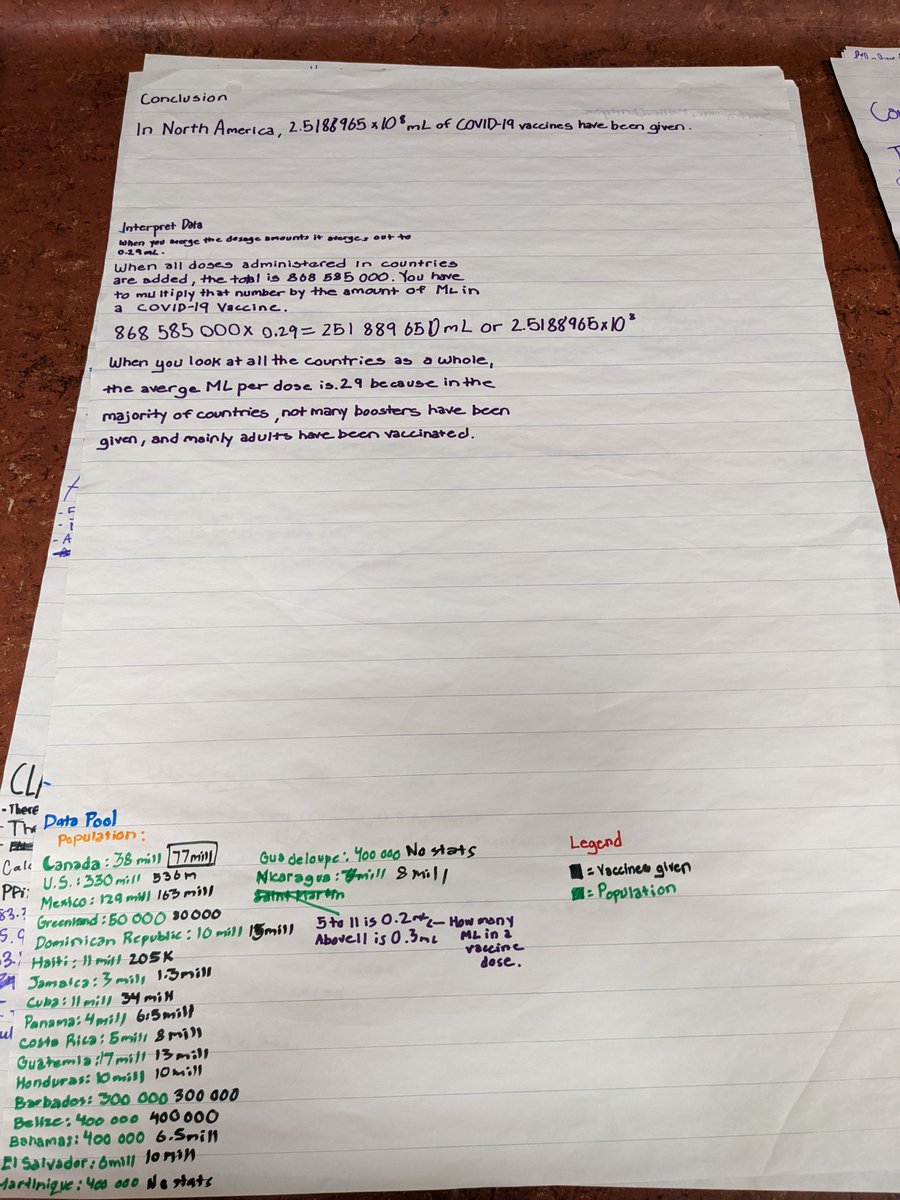 Conclusion
In North America, 2.5188965 x 10⁸ mL of COVID-19 vaccines have been given.
Interpret Data
When you averge the dosage amounts it averges out to
0.29mL.
When all doses administered in countries
are added, the total is 868 585 000. You have
to multiply that number by the amount of ML in
a COVID-19 Vaccine.
868 585 000 x 0.29 = 251 889 650 mL or 2.5188965 x 10⁸
When you look at all the countries as a whole,
the averge ML per dose is .29 because in the
majority of countries, not many boosters have been
given, and mainly adults have been vaccinated.
Data Pool
Population:
Canada: 38 mill 77mill
U.S.: 330 mill 536m
Mexico: 129 mill 163 mill
Greenland: 50 000 80000
Dominican Republic: 10 mill 15mill
Haiti: 11 mill 205K
Jamaica: 3 mill 1.3mill
Cuba: 11 mill 34 mill
Panama: 4mill 6.5mill
Costa Rica: 5mill 8mill
Guatemla: 17 mill 13 mill
Honduras: 10mill 10mill
Barbados: 300 000 300 000
Belize: 400 000 400 000
Bahamas: 400 000 6.5mill
El Salvador: 6mill 10 mill
Martinique: 400 000 No stats
Guadeloupe: 400 000 No stats
Nicaragua: 7mill 8 mill
Saint Martin
5 to 11 is 0.2mL
Above 11 is 0.3mL
How many
ML in a
vaccine
dose.
Legend
= Vaccines given
= Population
CLA
- There
- The
Calc